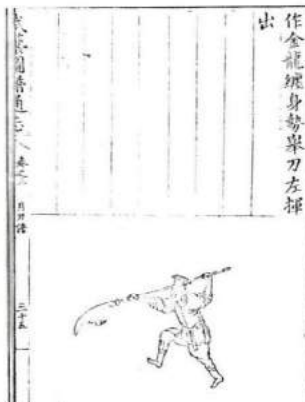 作金龍纏身勢舉刀左揮
出
武藝圖譜通志
卷之
月刀譜
三十五